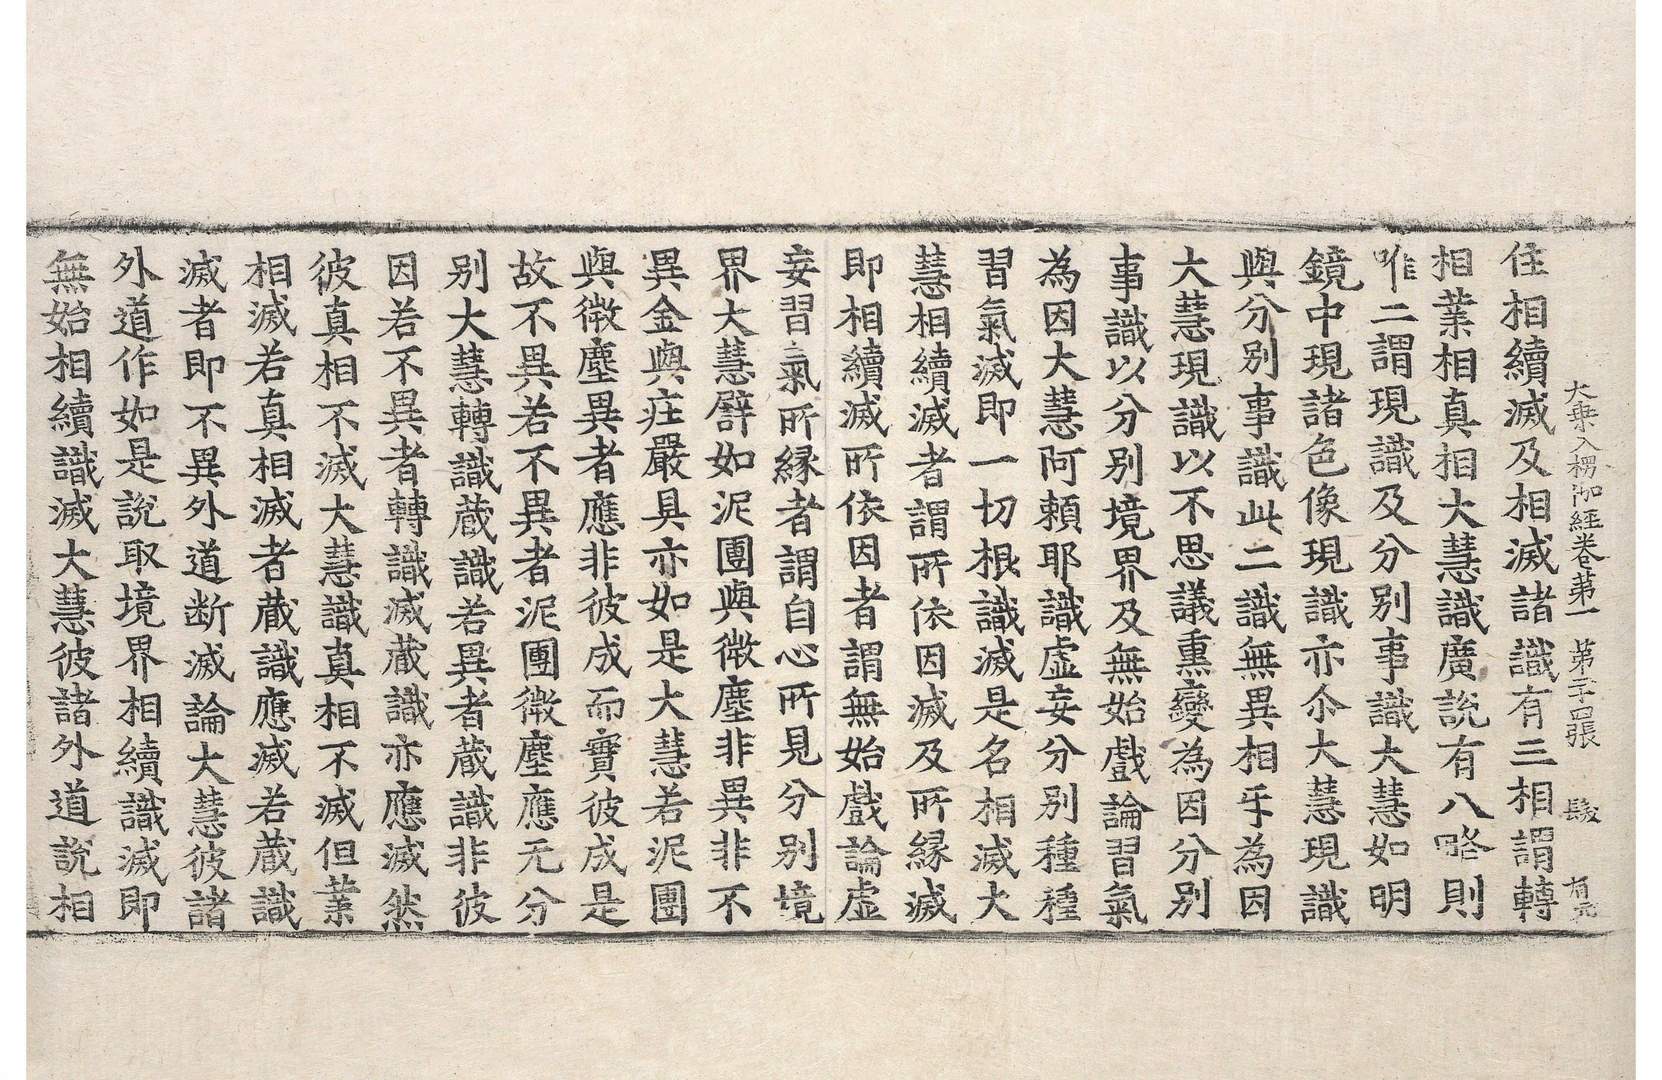 大乗入楞伽經卷第一 第二十四張 髮
住相續滅及相滅諸識有三相謂轉
相業相真相大慧識廣說有八略則
唯二謂現識及分別事識大慧如明
鏡中現諸色像現識亦尒大慧現識
與分別事識此二識無異相乎為因
大慧現識以不思議熏變為因分別
事識以分別境界及無始戲論習氣
為因大慧阿賴耶識虛妄分別種種
習氣滅即一切根識滅是名相滅大
慧相續滅者謂所依因滅及所緣滅
即相續滅所依因者謂無始戲論虛
妄習氣所緣者謂自心所見分別境
界大慧譬如泥團與微塵非異非不
異金與庄嚴具亦如是大慧若泥團
與微塵異者應非彼成而實彼成是
故不異若不異者泥團微塵應无分
別大慧轉識蔵識若異者蔵識非彼
因若不異者轉識滅蔵識亦應滅然
彼真相不滅大慧識真相不滅但業
相滅若真相滅者蔵識應滅若蔵識
滅者即不異外道断滅論大慧彼諸
外道作如是說取境界相續識滅即
無始相續識滅大慧彼諸外道說相